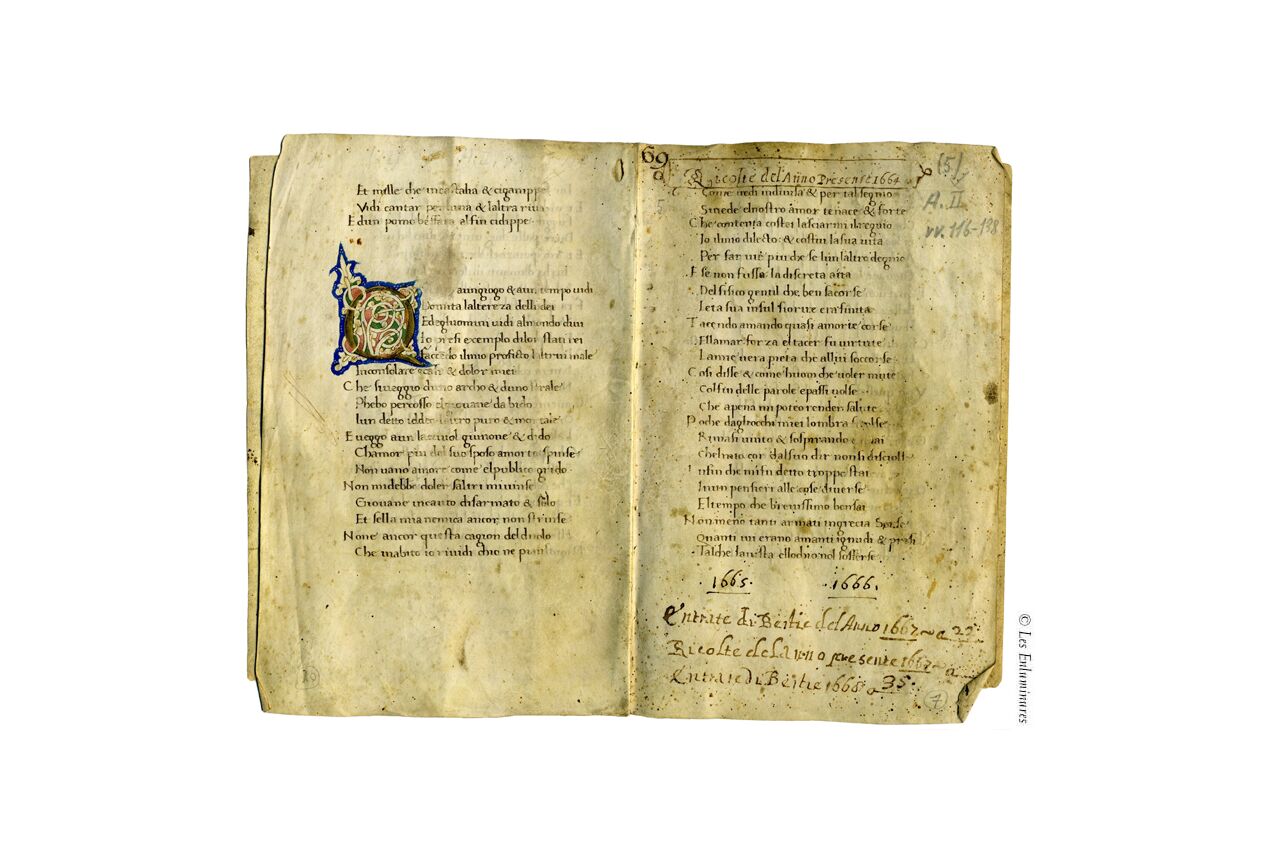 Et mille che incastalia & aganippe
Vidi cantar per luna & laltra riua
E dun pomo beffata alfin cidippe
Q
aungiogo & aun tempo uidi
Domita laltereza delli dei
Edegluomini uidi almondo diui
Io presi exemplo dilor stati rei
faccendo ilmio profitto laltrui male
Inconsolare & dolor miei
Che siueggio duno archo & duno strale
Phebo percosso elgiouane da bido
lun detto iddio puro & mortale
E ueggo aun lacciuol giunone & dido
Chamor piu del suo sposo amorte spinse
Non uano amore come elpublico grido
Non midebbe doler saltri miuinse
Giouane incauto disarmato & solo
Et sella mia nemica ancor non strinse
None ancor questa cagion delduolo
Che inabito io riuidi chio ne piansi
20
69
Ricolte del Anno Presente 1664
(5)
A. II
vv. 116-138
Come uedi indiuisa & per tal segnio
Siuede elnostro amor tenace & forte
Che contenta costei lasciarmi ilregnio
Io ilmio dilecto & costui lasua uita
Per far uie piu che se lun laltro degnio
E se non fusse la discreta aita
Del fisico gentil che ben sacorse
Leta sua insul fiorire era finita
Tacendo amando quasi amorte corse
Ellamar forza eltacer fu uirtute
La mie uera pieta che allui soccorse
Cosi disse & come huom che uoler mute
Colfin delle parole epassi uolse
Che apena mi poteo render salute
Poche dagliocchi miei lombra
Rimasi uinto & sospirando
Chelmio cor dalsuo dir non si
Infin che mi fu detto troppo stai
Inun pensieri alle cose diuerse
Eltempo che breuissimo bensai
Non meno tanti armati ingrecia
Quanti iui erano amanti ignudi & presi
Talche lauista ellochio nol sofferse
1665. 1666.
Entrate di Bestie del Anno 1667 a 22
Ricolte del Anno presente 1667 a
Entrate di Bestie 1668 a 35
7
© Les Enluminures